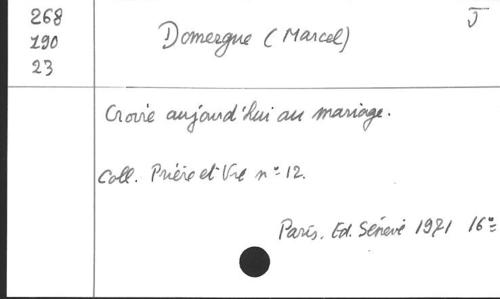 268
190
23
Domergue (Marcel)
J
Croire aujourd'hui au mariage.
Coll. Prière et Vie n° 12.
Paris. Ed. Sénevé 1971 16°